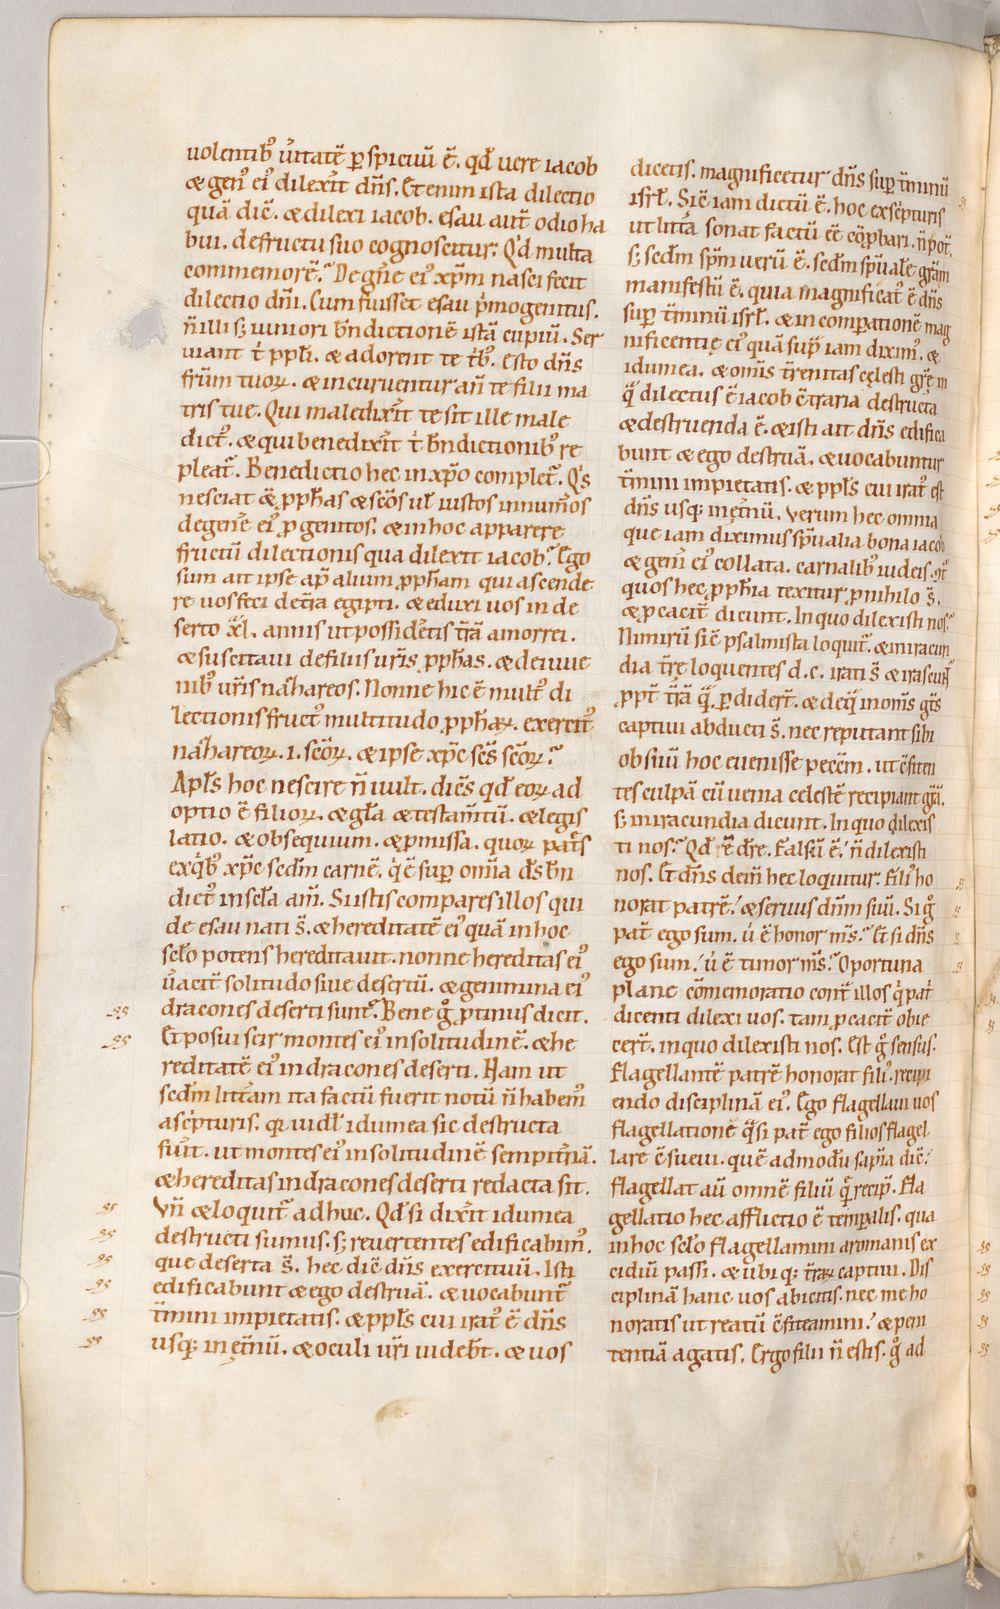 uolentib᷒ ue᷒ritatē ꝑspicuū ē. qđ uere iacob
& gen᷒ ei᷒ dilexit dn̄s. Et enim ista dilectio
quā diē. & dilexi iacob. esau aut̄ odio ha
bui. de fructu suo cognoscitur. Qđ multa
commemorē? De gn̄e ei᷒ xp̄m nasci fecit
dilectio dn̄i. Cum fuisset esau p̄mogenitus.
ñ illi s; iuniori bn̄dictionē istā cupiū. Ser
uiant t̄ ppl̄i. & adorent te tb᷒. Esto dn̄s
fr̄um tuoꝝ. & incuruentur añ te filii ma
tris tue. Qui maledixit̄ te sit ille male
dict᷒. & qui benedixit̄ t̄ bn̄dictionib᷒ re
pleat̄. Benedictio hec in xp̄o complet̄. Q's
nesciat & ꝓph̄as & sc̄os ul̄ iustos innum̄os
de gen̄e ei᷒ ꝓgenitos. & in hoc apparere
fructū dilectionis qua dilexit iacob? Ego
sum ait ipse ap̄ alium ꝓph̄am qui ascende
re uos feci de tr̄a egipti. & eduxi uos in de
serto xl. annis ut possidētis tr̄ā amorrei.
& suscitaui de filiis ur̄is ꝓph̄as. & de iuue
nib᷒ ur̄is nazareos. Nonne hic ē mult᷒ di
lectionis fruct᷒ multitudo ꝓph̄aꝝ. exercit᷒
nazareoꝝ. i. sc̄oꝝ. & ipse xp̄c sc̄s sc̄oꝝ?
Apl̄s hoc nescire ñ uult. dicēs qđ eoꝝ ad
optio ē filioꝝ. & gl̄a & testam̄tū. & legis
latio. & obsequium. & ꝓmissa. quoꝝ pat̄s
ex qb᷒ xp̄c scd̄m carnē. q' ē sup̄ om̄ia d̄s bn̄
dict᷒ in scl̄a am̄. Si istis compares illos qui
de esau nati s̄. & hereditatē ei᷒ quā in hoc
scl̄o potens hereditauit. nonne hereditas ei᷒
ūa cit̄ solitudo siue desertū. & genimina ei᷒
dracones deserti sunt? Bene g° ꝓtinus dicit.
Et posui seir montes ei᷒ in solitudinē. & he
reditatē ei᷒ in dracones deserti. Nam ut
scd̄m litt̄am ita factū fuerit notū ñ habem᷒
a sc̄pturis. qr̄ uidl̄ idumea sic destructa
fuit̄. ut montes ei᷒ in solitudinē sempit̄nā.
& hereditas in dracones deserti redacta sit.
Vn̄ & loquit̄ adhuc. Qđ si dixit̄ idumea
destructi sumus. s; reuertentes edificabim᷒.
que deserta s̄. hec dic̄ dn̄s exercituū. Isti
edificabunt & ego destruā. & uocabunt̄
t̄mini impietatis. & ppl̄s cui irat᷒ ē dn̄s
usq; in ęt̄nū. & oculi ur̄i uideb̄t. & uos
dicetis. magnificetur dn̄s sup̄ t̄minū
isrl̄. Sic̄ iam dictū ē. hoc ex sc̄pturis
ut litt̄a sonat factū ēē cōꝓbari ñ pot̄.
s; scd̄m spm̄ uerū ē. scd̄m spūale gr̄am
manifestū ē. quia magnificat᷒ ē dn̄s
sup̄ t̄minū isrl̄. & in comparatione mag
nificentię ei᷒ quā sup̄ iam dixim᷒. &
idumea. & om̄s t̄renitas cęlesti gr̄ę in
q̄ dilectus ē iacob ꝯtraria destructa
& destruenda ē. & isti ait dn̄s edifica
bunt & ego destruā. & uocabuntur
t̄mini impietatis. & ppl̄s cui irat᷒ est
dn̄s usq; in ęt̄nū. Verum hec omnia
que iam diximus spūalia bona iacob
& gen̄i ei᷒ collata. carnalib᷒ iudeis ꝯt̄
quos hec ꝓph̄ia texitur ꝓ nihilo s̄.
& ꝓcacit̄ dicunt. In quo dilexisti nos?
Nimirū sic̄ psalmista loquit̄. & in iracun
dia t̄rę loquentes d.c. irati s̄ & irascunt̄
ꝓpt̄ tr̄ā q̄ ꝑdider̄t. & de q̄ in om̄s gt̄s
captiui abducti s̄. nec reputant sibi
ob suū hoc euenisse pecc̄m. ut ꝯfiten
tes culpā cū uenia celestē recipiant gr̄a.
s; in iracundia dicunt. In quo dilexis
ti nos? Qđ ē dr̄e. Falsū ē. ñ dilexisti
nos. Et dn̄s dein̄ hec loquitur. Fili᷒ ho
norat patrē. & seruus dn̄m suū. Si g°
pat̄ ego sum. u' ē honor m̄s? Et si dn̄s
ego sum. u' ē timor m̄s? Oportuna
plane cōmemoratio cont̄ illos q' pat̄
dicenti dilexi uos. tam ꝓcacit̄ obie
cer̄t. in quo dilexisti nos. Est g° sensus.
Flagellantē patrē honorat fili᷒. recipi
endo disciplinā ei᷒. Ego flagellaui uos
flagellatione q̄si pat̄ ego filios flagel
lare ꝯsueui. quēadmodū sapīa dic̄.
flagellat aū omnē filiū quē recip̄. Fla
gellatio hec afflictio ē temꝑalis. qua
in hoc scl̄o flagellamini a romanis ex
cidiū passi. & ubiq; t̄raꝝ captiui. Dis
ciplinā hanc uos abicitis. nec me ho
noratis ut reatū ꝯfiteamini. & peni
tentiā agatis. Ergo filii ñ estis. g° ad